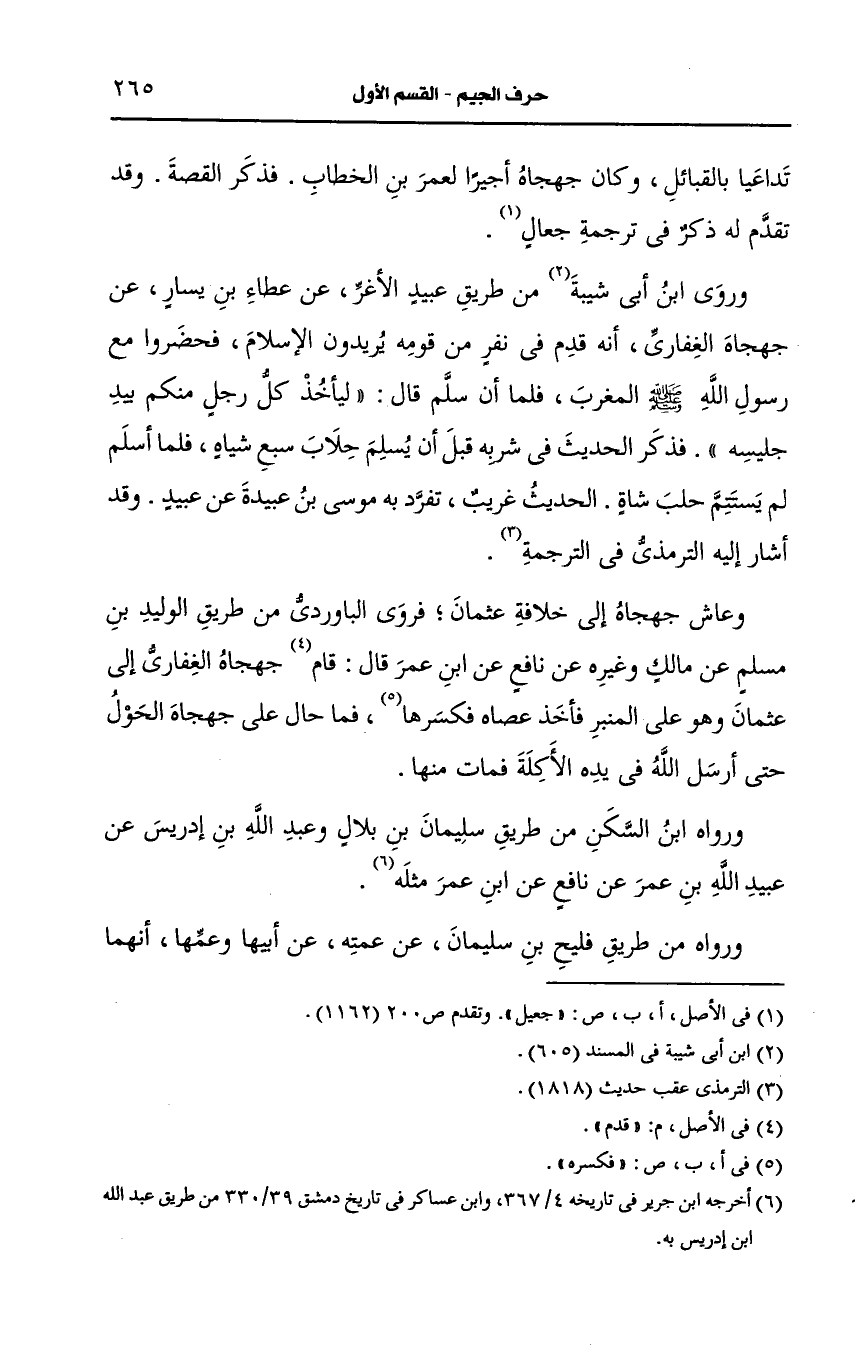 حرف الجيم - القسم الأول ٢٦٥
تَداعَيا بالقبائلِ ، وكان جهجاهُ أجيرًا لعمرَ بنِ الخطابِ . فذكَر القصةَ . وقد
تقدَّم له ذكرٌ فى ترجمةِ جعالٍ(١) .
وروَى ابنُ أبى شيبةَ(٢) من طريقِ عبيدٍ الأغرِّ ، عن عطاءِ بنِ يسارٍ ، عن
جهجاهَ الغِفارىِّ ، أنه قدِم فى نفرٍ من قومِه يُريدون الإسلامَ ، فحضَروا مع
رسولِ اللَّهِ ﷺ المغربَ ، فلما أن سلَّم قال : « ليأخُذْ كلُّ رجلٍ منكم بيدِ
جليسِه » . فذكَر الحديثَ فى شربِه قبلَ أن يُسلِمَ حِلَابَ سبعِ شياهٍ ، فلما أسلَم
لم يَستَتِمَّ حلبَ شاةٍ . الحديثُ غريبٌ ، تفرَّد به موسى بنُ عبيدةَ عن عبيدٍ . وقد
أشار إليه الترمذىُّ فى الترجمةِ(٣) .
وعاش جهجاهُ إلى خلافةِ عثمانَ ؛ فروَى الباوردىُّ من طريقِ الوليدِ بنِ
مسلمٍ عن مالكٍ وغيرِه عن نافعٍ عن ابنِ عمرَ قال : قام(٤) جهجاهُ الغِفارىُّ إلى
عثمانَ وهو على المنبرِ فأخَذ عصاه فكسَرها(٥) ، فما حال على جهجاهَ الحَوْلُ
حتى أرسَل اللَّهُ فى يدِه الأَكِلَةَ فمات منها .
ورواه ابنُ السَّكَنِ من طريقِ سليمانَ بنِ بلالٍ وعبدِ اللَّهِ بنِ إدريسَ عن
عبيدِ اللَّهِ بنِ عمرَ عن نافعٍ عن ابنِ عمرَ مثلَه(٦) .
ورواه من طريقِ فليحِ بنِ سليمانَ ، عن عمتِه ، عن أبيها وعمِّها ، أنهما
(١) فى الأصل ، أ ، ب ، ص : « جعيل ». وتقدم ص٢٠٠ (١١٦٢) .
(٢) ابن أبى شيبة فى المسند (٦٠٥) .
(٣) الترمذى عقب حديث (١٨١٨) .
(٤) فى الأصل ، م: « قدم » .
(٥) فى أ ، ب ، ص : « فكسره » .
(٦) أخرجه ابن جرير فى تاريخه ٤/ ٣٦٧، وابن عساكر فى تاريخ دمشق ٣٩/ ٣٣٠ من طريق عبد الله
ابن إدريس به.